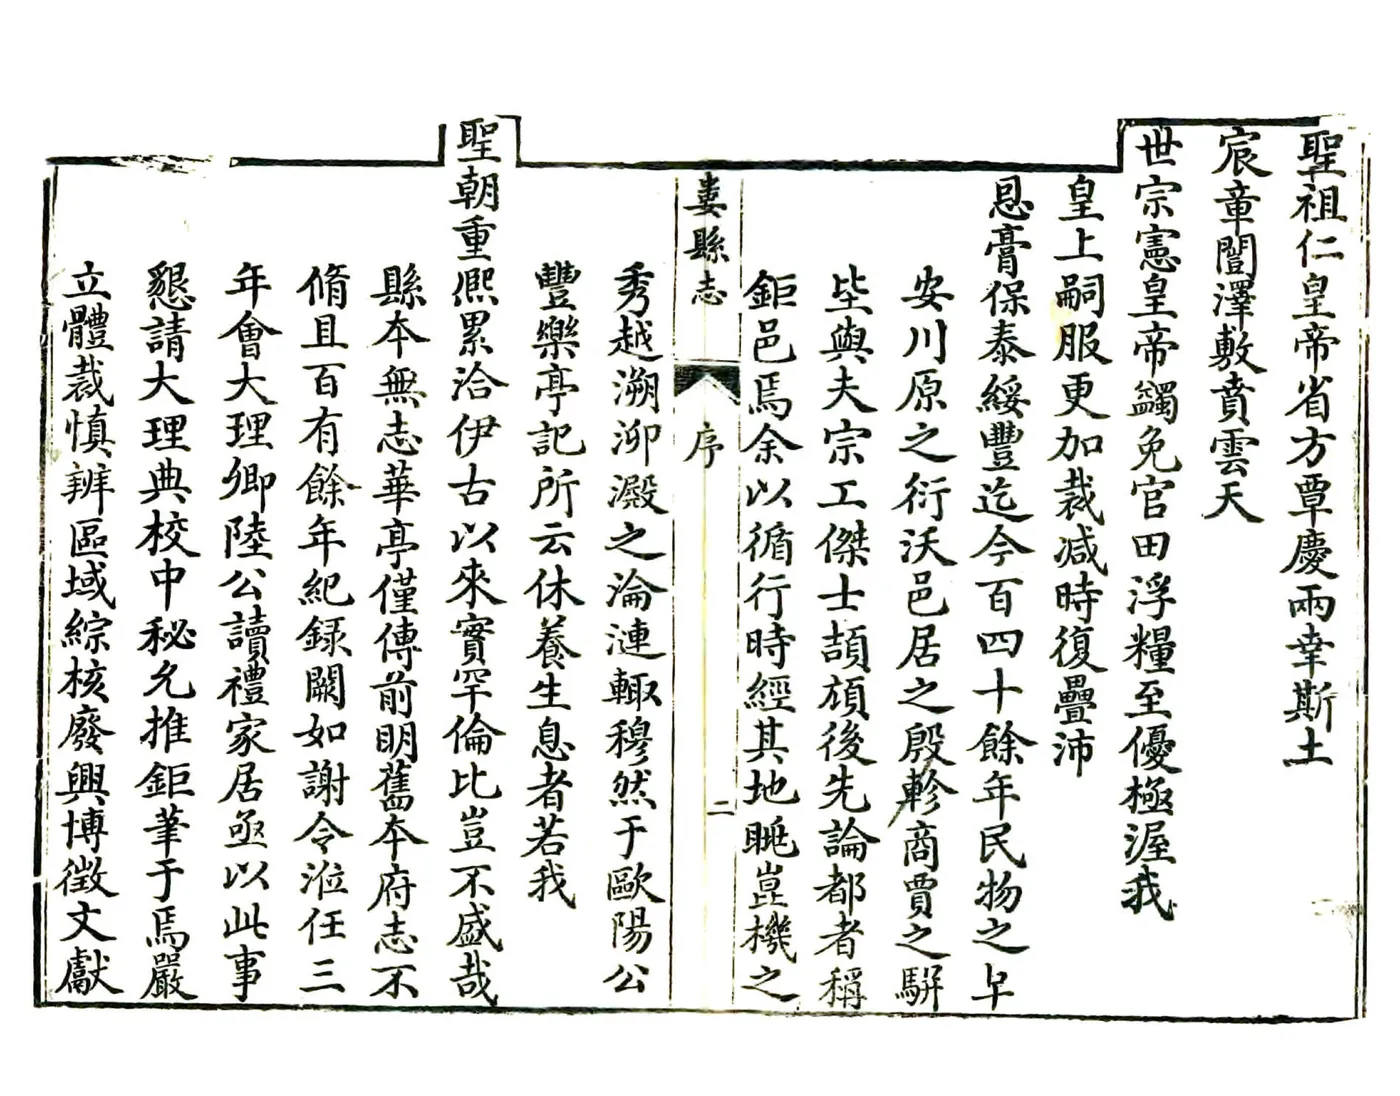 聖祖仁皇帝省方覃慶兩幸斯土
宸章誾澤敷賁雲天
世宗憲皇帝蠲免官田浮糧至優極渥我
皇上嗣服更加裁減時復疊沛
恩膏保泰綏豐迄今百四十餘年民物之阜
安川原之衍沃邑居之殷軫商賈之駢
坒與夫宗工傑士頡頏後先論都者稱
鉅邑焉余以循行時經其地眺崑機之
婁縣志
序
二
秀越溯泖澱之淪漣輙穆然于歐陽公
豐樂亭記所云休養生息者若我
聖朝重熈累洽伊古以來實罕倫比豈不盛哉
縣本無志華亭僅傳前明舊本府志不
脩且百有餘年紀録闕如謝令涖任三
年會大理卿陸公讀禮家居亟以此事
懇請大理典校中秘允推鉅筆于焉嚴
立體裁慎辨區域綜核廢興博徵文獻